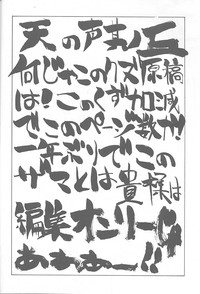 天の声其ノ五
何じゃこのクズ原稿
は!このくずナロン減
でこのページ数か!!
一年ぶりでこの
ザマとは貴様は
編集オンリーじゃ
あぁぁー!!